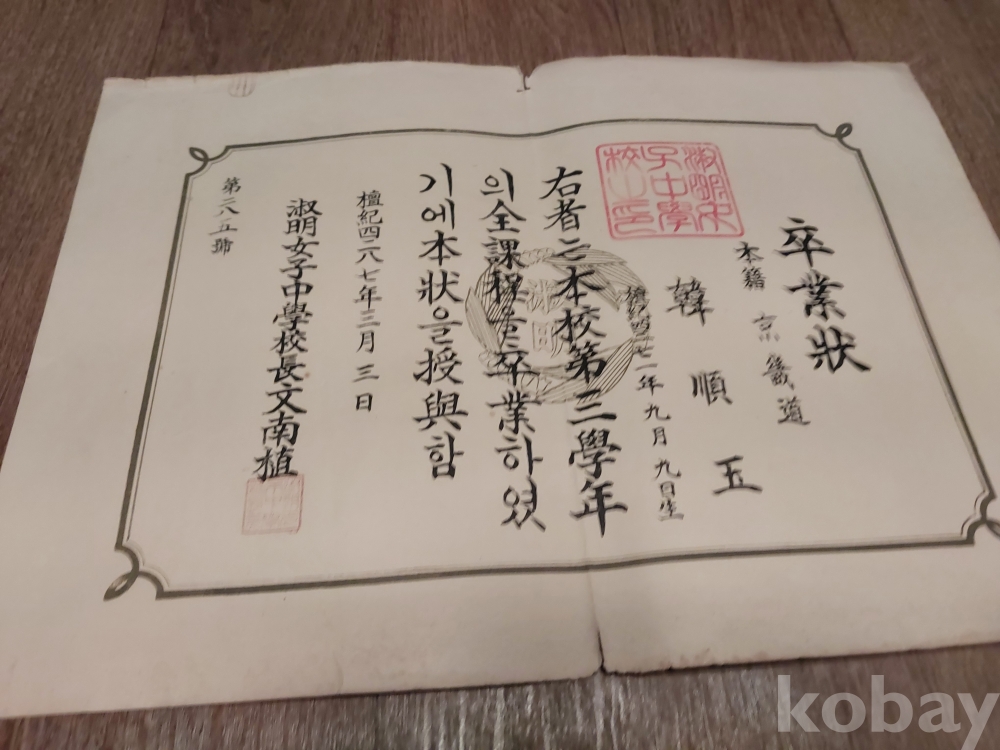 卒業狀
本籍 京畿道
韓順玉
檀紀四二七一年九月九日生
右者는本校第三學年
의全課程을卒業하였
기에本狀을授與함
檀紀四二八七年三月三日
淑明女子中學校長文南植
第二八五號
淑明女
子中學
校之印
淑明
kobay